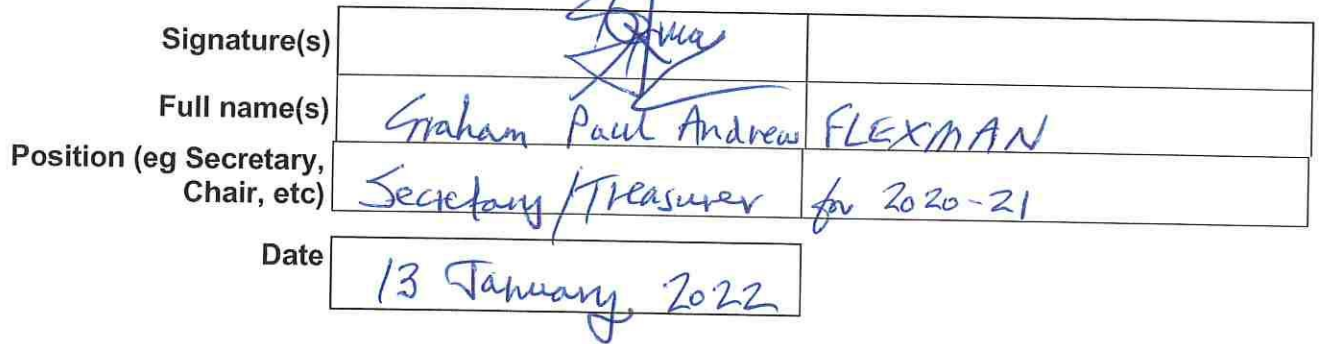 Signature(s)
Full name(s) Graham Paul Andrew FLEXMAN
Position (eg Secretary,
Chair, etc) Secretary/Treasurer for 2020-21
Date 13 January 2022